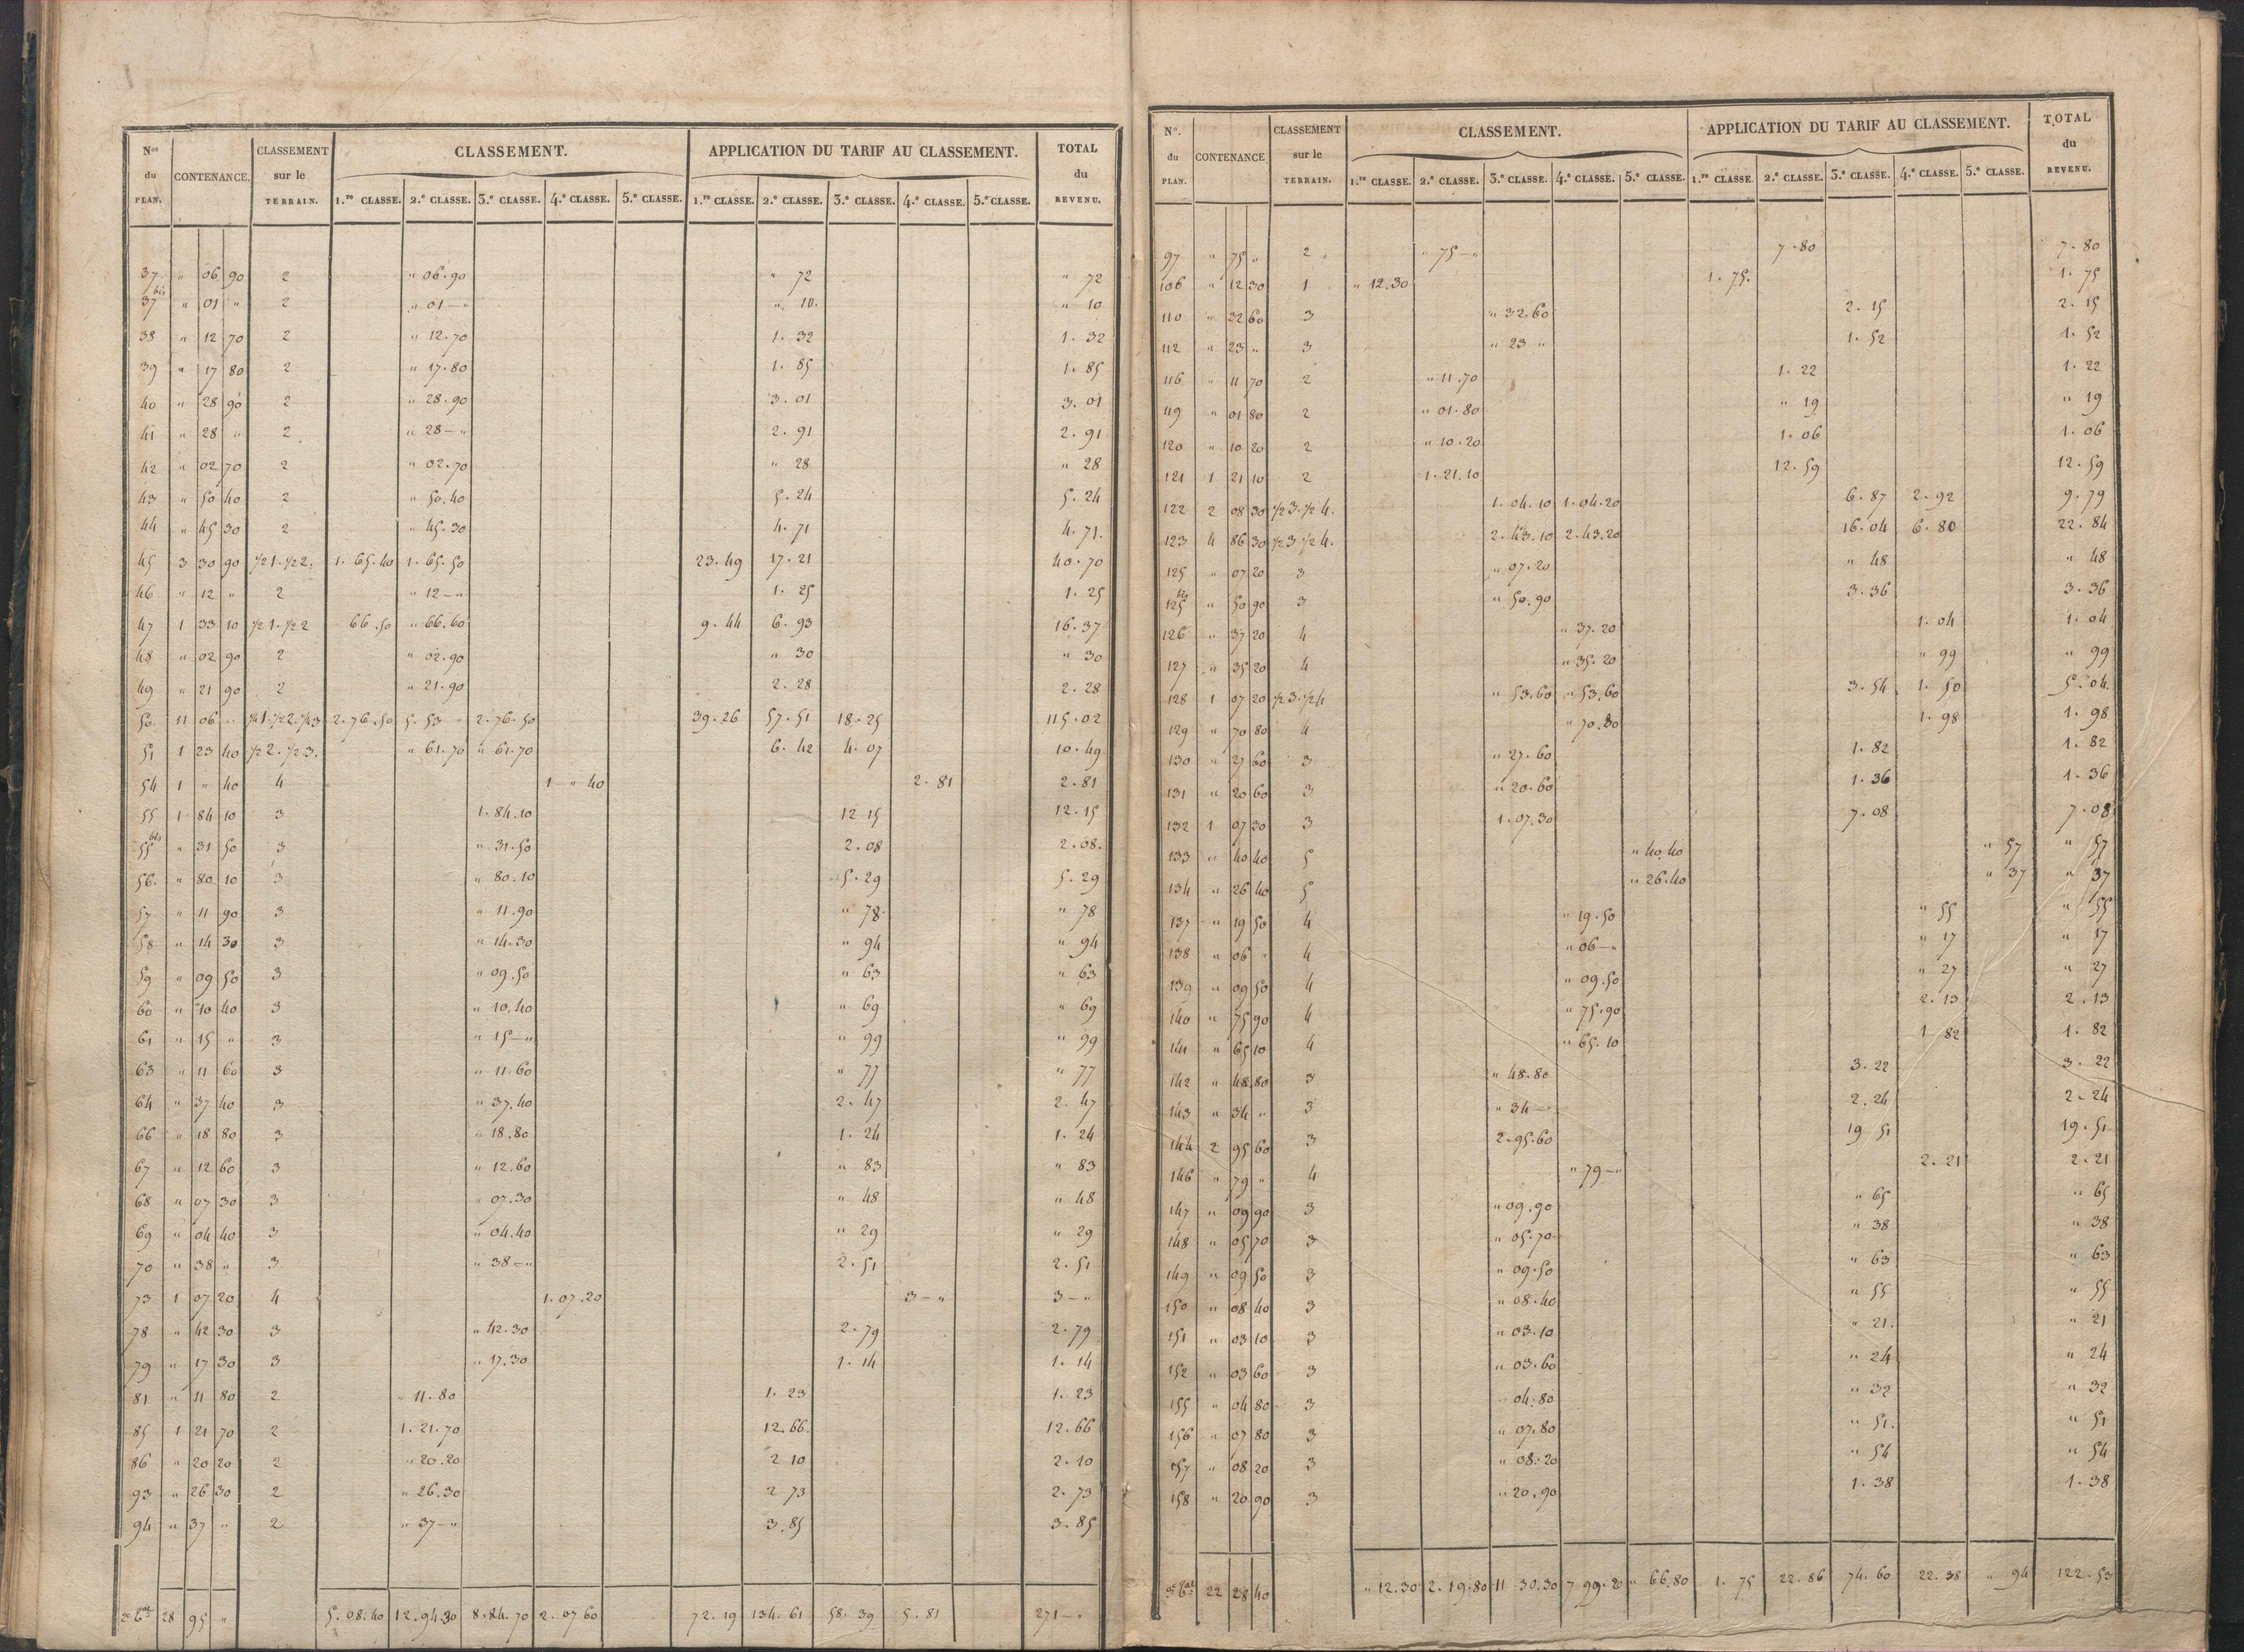 Nos du PLAN. CONTENANCE. CLASSEMENT sur le TERRAIN. CLASSEMENT. APPLICATION DU TARIF AU CLASSEMENT. TOTAL du REVENU.
1.re CLASSE. 2.e CLASSE. 3.e CLASSE. 4.e CLASSE. 5.e CLASSE. 1.re CLASSE. 2.e CLASSE. 3.e CLASSE. 4.e CLASSE. 5.e CLASSE.
37 " 06 90 2 " 06.90 " 72 " 72
37 bis " 01 " 2 " 01 — " " 10. " 10
38 " 12 70 2 " 12.70 1. 32 1. 32
39 " 17 80 2 " 17.80 1. 85 1. 85
40 " 28 90 2 " 28.90 3. 01 3. 01
41 " 28 " 2 " 28 — " 2. 91 2. 91
42 " 02 70 2 " 02.70 " 28 " 28
43 " 50 40 2 " 50.40 5. 24 5. 24
44 " 45 30 2 " 45.30 4. 71 4. 71.
45 3 30 90 1/2 1. 1/2 2. 1. 65.40 1. 65.50 23.49 17.21 40.70
46 " 12 " 2 " 12 — " 1. 25 1. 25
47 1 33 10 1/2 1. 1/2 2 66.50 " 66.60 9.44 6.93 16.37
48 " 02 90 2 " 02.90 " 30 " 30
49 " 21 90 2 " 21.90 2. 28 2. 28
50 11 06 " 1/4 1. 1/2 2. 1/4 3 2.76.50 5. 53 " 2.76.50 39.26 57.51 18.25 115.02
51 1 23 40 1/2 2. 1/2 3. " 61.70 " 61.70 6. 42 4. 07 10.49
54 1 " 40 4 1 " 40 2. 81 2. 81
55 1 84 10 3 1.84.10 12 15 12.15
55 bis " 31 50 3 " 31.50 2.08 2.08.
56. " 80 10 3 " 80.10 5.29 5.29
57 " 11 90 3 " 11.90 " 78. " 78
58 " 14 30 3 " 14.30 " 94 " 94
59 " 09 50 3 " 09.50 " 63 " 63
60 " 10 40 3 " 10.40 " 69 " 69
61 " 15 " 3 " 15 — " " 99 " 99
63 " 11 60 3 " 11.60 " 77 " 77
64 " 37 40 3 " 37.40 2. 47 2. 47
66 " 18 80 3 " 18.80 1. 24 1. 24
67 " 12 60 3 " 12.60 " 83 " 83
68 " 07 30 3 " 07.30 " 48 " 48
69 " 04 40 3 " 04.40 " 29 " 29
70 " 38 " 3 " 38 — " 2. 51 2. 51
73 1 07 20 4 1.07.20 3 — " 3 — "
78 " 42 30 3 " 42.30 2.79 2.79
79 " 17 30 3 " 17.30 1. 14 1. 14
81 " 11 80 2 " 11.80 1. 23 1. 23
85 1 21 70 2 1.21.70 12.66 12.66
86 " 20 20 2 " 20.20 2 10 2. 10
93 " 26 30 2 " 26.30 2 73 2. 73
94 " 37 " 2 " 37 — " 3. 85 3. 85
28 95 " 5.08.40 12.94.30 8.84.70 2.07 60 72.19 134.61 58. 39 5. 81 271 — "
No. du PLAN. CONTENANCE CLASSEMENT sur le TERRAIN. CLASSEMENT. APPLICATION DU TARIF AU CLASSEMENT. TOTAL du REVENU.
1.re CLASSE. 2.e CLASSE. 3.e CLASSE. 4.e CLASSE. 5.e CLASSE. 1.re CLASSE. 2.e CLASSE. 3.e CLASSE. 4.e CLASSE. 5.e CLASSE.
97 " 75 " 2 " 75 — " 7.80 7.80
106 " 12 30 1 " 12.30 1. 75. 1. 75
110 " 32 60 3 " 32.60 2. 15 2. 15
112 " 23 " 3 " 23 " 1. 52 1. 52
116 " 11 70 2 " 11.70 1. 22 1. 22
119 " 01 80 2 " 01.80 " 19 " 19
120 " 10 20 2 " 10.20 1.06 1.06
121 1 21 10 2 1.21.10 12.59 12.59
122 2 08 30 1/2 3. 1/2 4. 1.04.10 1.04.20 6.87 2.92 9.79
123 4 86 30 1/2 3. 1/2 4. 2.43.10 2.43.20 16.04 6.80 22.84
125 " 07 20 3 " 07.20 " 48 " 48
125 bis " 50 90 3 " 50.90 3.36 3.36
126 " 37 20 4 " 37.20 1.04 1.04
127 " 35 20 4 " 35.20 " 99 " 99
128 1 07 20 1/2 3. 1/2 4 " 53.60 " 53.60 3.54 1. 50 5.04.
129 " 70 80 4 " 70.80 1.98 1.98
130 " 27 60 3 " 27.60 1.82 1.82
131 " 20 60 3 " 20.60 1.36 1.36
132 1 07 30 3 1.07.30 7.08 7.08
133 " 40 40 5 " 40.40 " 57 " 57
134 " 26 40 5 " 26.40 " 37 " 37
137 " 19 50 4 " 19.50 " 55 " 55
138 " 06 " 4 " 06 — " " 17 " 17
139 " 09 50 4 " 09.50 " 27 " 27
140 " 75 90 4 " 75.90 2.13 2.13
141 " 65 10 4 " 65.10 1 82 1.82
142 " 48 80 3 " 48.80 3.22 3.22
143 " 34 " 3 " 34 — 2.24 2.24
144 2 95 60 3 2.95.60 19 51 19.51
146 " 79 " 4 " 79 — " 2.21 2.21
147 " 09 90 3 " 09.90 " 65 " 65
148 " 05 70 3 " 05.70 " 38 " 38
149 " 09 50 3 " 09.50 " 63 " 63
150 " 08 40 3 " 08.40 " 55 " 55
151 " 03 10 3 " 03.10 " 21. " 21
152 " 03 60 3 " 03.60 " 24 " 24
155 " 04 80 3 04.80 " 32 " 32
156 " 07 80 3 " 07.80 " 51. " 51
157 " 08 20 3 " 08.20 " 54 " 54
158 " 20 90 3 " 20.90 1.38 1.38
22 28 40 " 12.30 2.19.80 11 30.30 7 99.20 " 66.80 1. 75 22.86 74.60 22.38 " 94 122.53